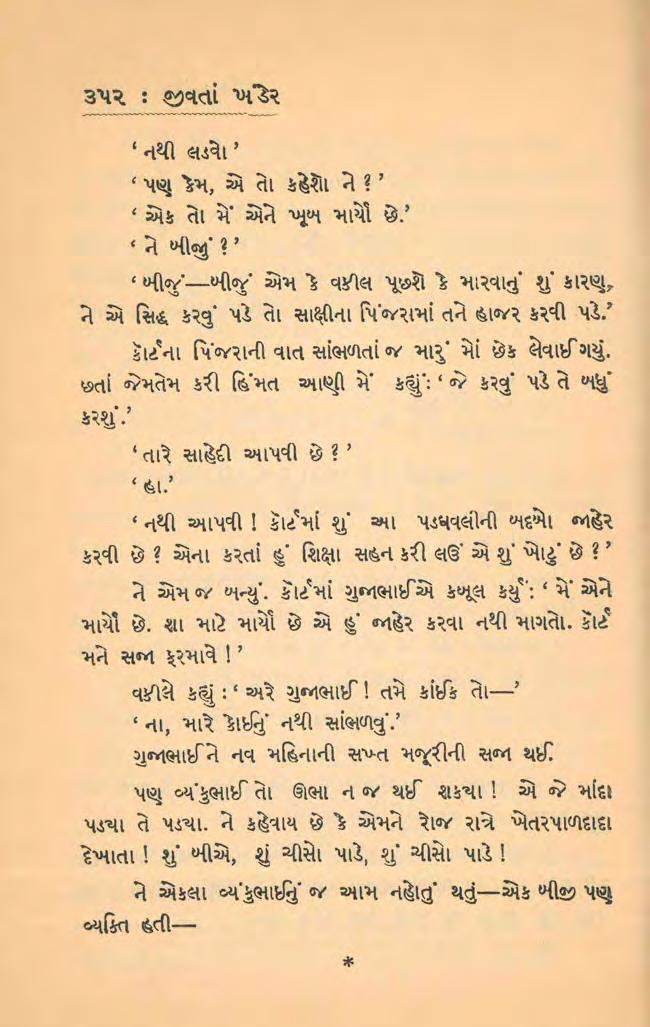 ૩૫૨ : જીવતાં ખંડેર
‘ નથી લડવો ’
‘ પણ કેમ, એ તો કહેશો ને ? ’
‘ એક તો મેં એને ખૂબ માર્યો છે.’
‘ ને બીજું ? ’
‘ બીજું—બીજું એમ કે વકીલ પૂછશે કે મારવાનું શું કારણ,
ને એ સિદ્ધ કરવું પડે તો સાક્ષીના પિંજરામાં તને હાજર કરવી પડે.’
કૉર્ટના પિંજરાની વાત સાંભળતાં જ મારું મોં છેક લેવાઈ ગયું.
છતાં જેમતેમ કરી હિંમત આણી મેં કહ્યું: ‘ જે કરવું પડે તે બધું
કરશું.’
‘તારે સાહેદી આપવી છે ? ’
‘ હા.’
‘ નથી આપવી ! કૉર્ટમાં શું આ પડધવલીની બદબો જાહેર
કરવી છે ? એના કરતાં હું શિક્ષા સહન કરી લઉં એ શું ખોટું છે ? ’
ને એમ જ બન્યું. કૉર્ટમાં ગુજાભાઈએ કબૂલ કર્યું : ‘ મેં એને
માર્યો છે. શા માટે માર્યો છે એ હું જાહેર કરવા નથી માગતો. કૉર્ટ
મને સજા ફરમાવે ! ’
વકીલે કહ્યું : ‘ અરે ગુજાભાઈ ! તમે કાંઈક તો—’
‘ ના, મારે કોઈનું નથી સાંભળવું.’
ગુજાભાઈને નવ મહિનાની સખ્ત મજૂરીની સજા થઈ.
પણ વ્યંકુભાઈ તો ઊભા ન જ થઈ શક્યા ! એ જે માંદા
પડ્યા તે પડ્યા. ને કહેવાય છે કે એમને રોજ રાત્રે ખેતરપાળદાદા
દેખાતા ! શું બીએ, શું ચીસો પાડે, શું ચીસો પાડે !
ને એકલા વ્યંકુભાઈનું જ આમ નહોતું થતું—એક બીજી પણ
વ્યક્તિ હતી—
*